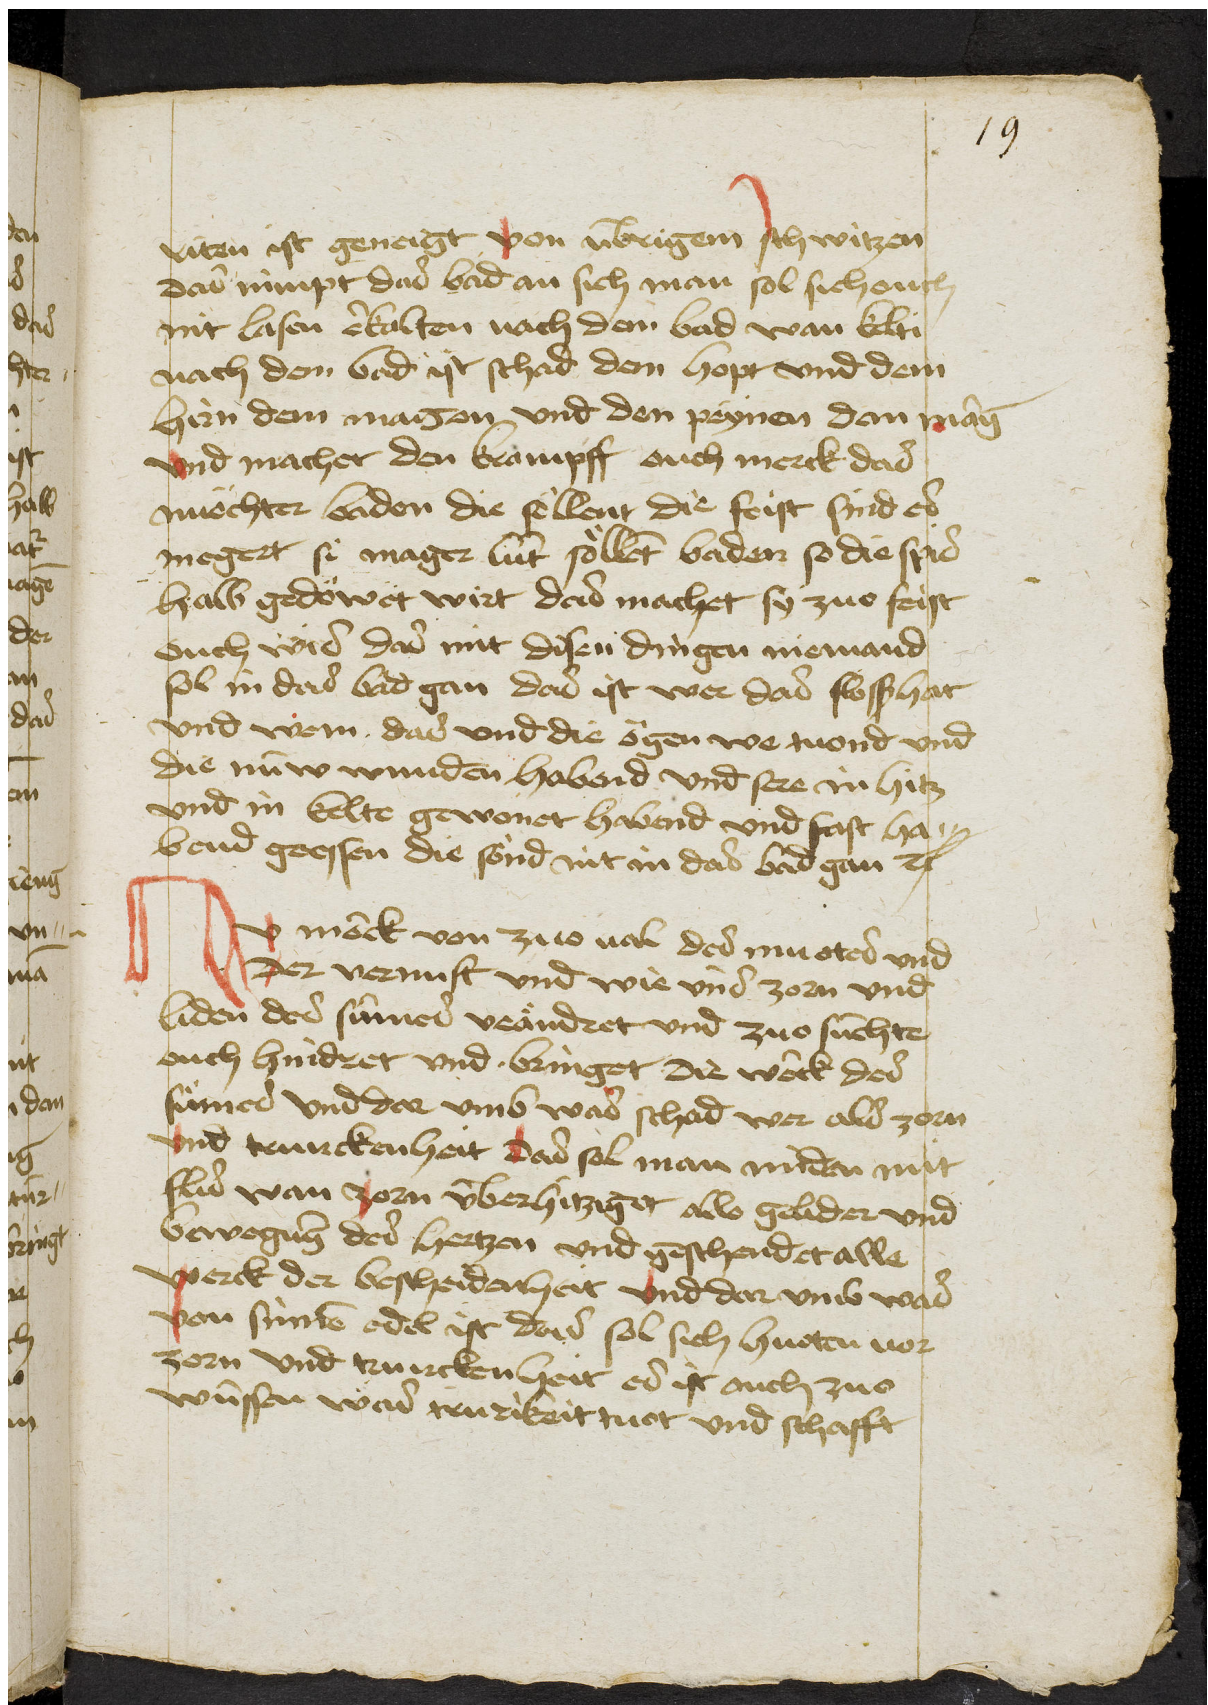 19
riten ist geneigt von übrigem schwitzen
das nimpt das bad an sich man sol sich ouch
nit lasen erkalten nach dem bad wan kelti
nach dem bad ist schad dem hopt vnd dem
hirn dem magen vnd den peynen dan mag
vnd machet den krampff ouch merck das
nüchter baden die söllent die feist sind es
megert si mager lüt söllent baden so die spis
halb gedöwet wirt das machet sy zuo feist
ouch wis das mit disen dingen niemand
sol in das bad gan das ist wer das floss hat
vnd wem das vnd die ögen we tuond vnd
die nüw wunden habend vnd sere in hitz
vnd in kelte gewonet habend vnd fast ha
bend geessen die sönd nit in das bad gan
Nv merck von zuo ual des muotes vnd
der vernuft vnd wie vns zorn vnd
liden des sinnes verändret vnd zuo
ouch hindret vnd bringet die werck des
sinnes vnd dar vmb was schad wer als zorn
vnd trurckenheit das sol man miden mit
flis wan zorn überhitziget alle gelider vnd
bewegung des hertzen vnd geschendet alle
werck der bescheidenheit vnd dar vmb was
von sinnen edel ist das sol sich huoten vor
zorn vnd trurckenheit es ist ouch zuo
wüssen was trurikeit tuot vnd schafft